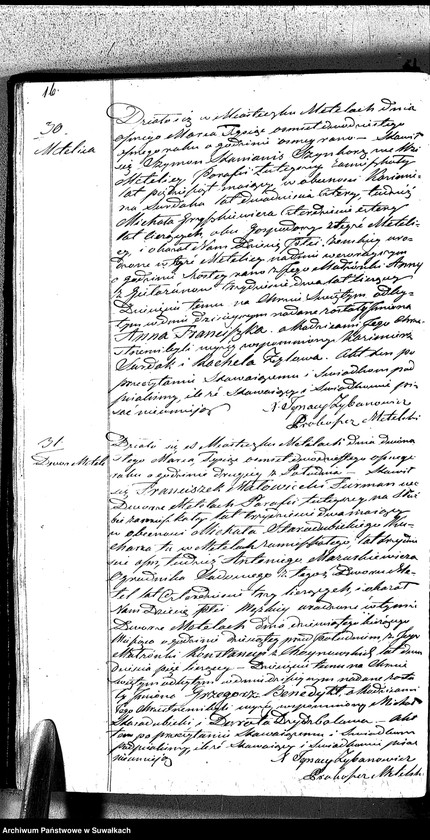 16.
30.
Metelica
Działo się w Miasteczku Metelach dnia
ósmego Marca Tysiąc osmset dwudziestego
ósmego roku o godzinie osmej rano — Stawił
się Szymon
Metelicy Parafii tutejszej zamieszkały
lat pięćdziesiąt mający, w obecności Kazimie-
na Surdaka lat dwadzieścia cztery, tudzież
Michała Gryszkiewicza czterdzieści cztery
lat liczących, obu Gospodarzy z tejże Meteli-
cy, i okazał Nam Dziecię płci żeńskiej uro-
dzone w tejże Metelicy na dniu wczorajszym
o godzinie szóstej rano z Jego Małżonki Anny
z trzydzieści dwa lat liczącej
Dziecięciu temu na Chrzcie Świętym odby-
tym w dniu dzisiejszym nadane zostały Imiona
Anna Franciszka, a Rodzicami Jego Chrze-
stnemi byli wyżej wspomniony Kazimierz
Surdak i Rachela Akt ten po
przeczytaniu Stawającemu i Świadkom pod-
pisaliśmy, ile że Stawający i Świadkowie pi-
sać nieumieją X Ignacy Zybanowicz
Proboszcz Metelski
31
Dwór Metele
Działo się w Miasteczku Metelach dnia dwuna-
stego Marca Tysiąc osmset dwudziestego osmego
roku o godzinie drugiej z Południa — Stawił
się Franciszek Matowicki Furman we
Dworze Metelach Parafii tutejszej na Służ-
bie zamieszkały lat trzydzieści dwa mający
w obecności Michała Staradubskiego Ku-
charza tu w Metelach zamieszkałego, lat
tudzież Antoniego Maruszkiewicza
Ogrodnika Dwornego z tegoż Dworu Me-
tel lat czterdzieści trzy liczących, i okazał
Nam Dziecię płci Męzkiej urodzone w tymże
Dworze Metelach dnia dziewiątego bieżącego
Miesiąca o godzinie dziewiątej przed południem, z Jego
Małżonki Konstancyi z lat dwa-
dzieścia pięć liczącej — Dziecięciu temu na Chrzcie
świętym odbytym w dniu dzisiejszym nadane zosta-
ły Imiona Grzegorz Benedykt, a Rodzicami
Jego Chrzestnemi byli wyżej wspomniony Michał
Staradubski i Dorota — Akt
ten po przeczytaniu Stawającemu i Świadkom
podpisaliśmy, ile że Stawający i Świadkowie pisać
nieumieją X Ignacy Zybanowicz
Proboszcz Metelski
Archiwum Państwowe w Suwałkach